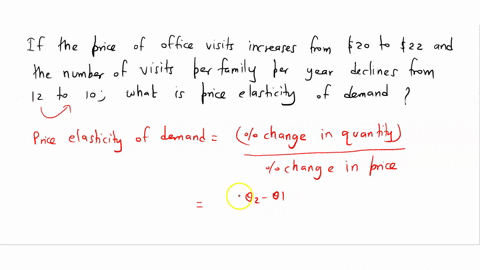 If the price of office visits increases from $20 to $22 and
the number of visits per family per year declines from
12 to 10; what is price elasticity of demand ?
Price elasticity of demand = (% change in quantity)
% change in price
= Q2 - Q1